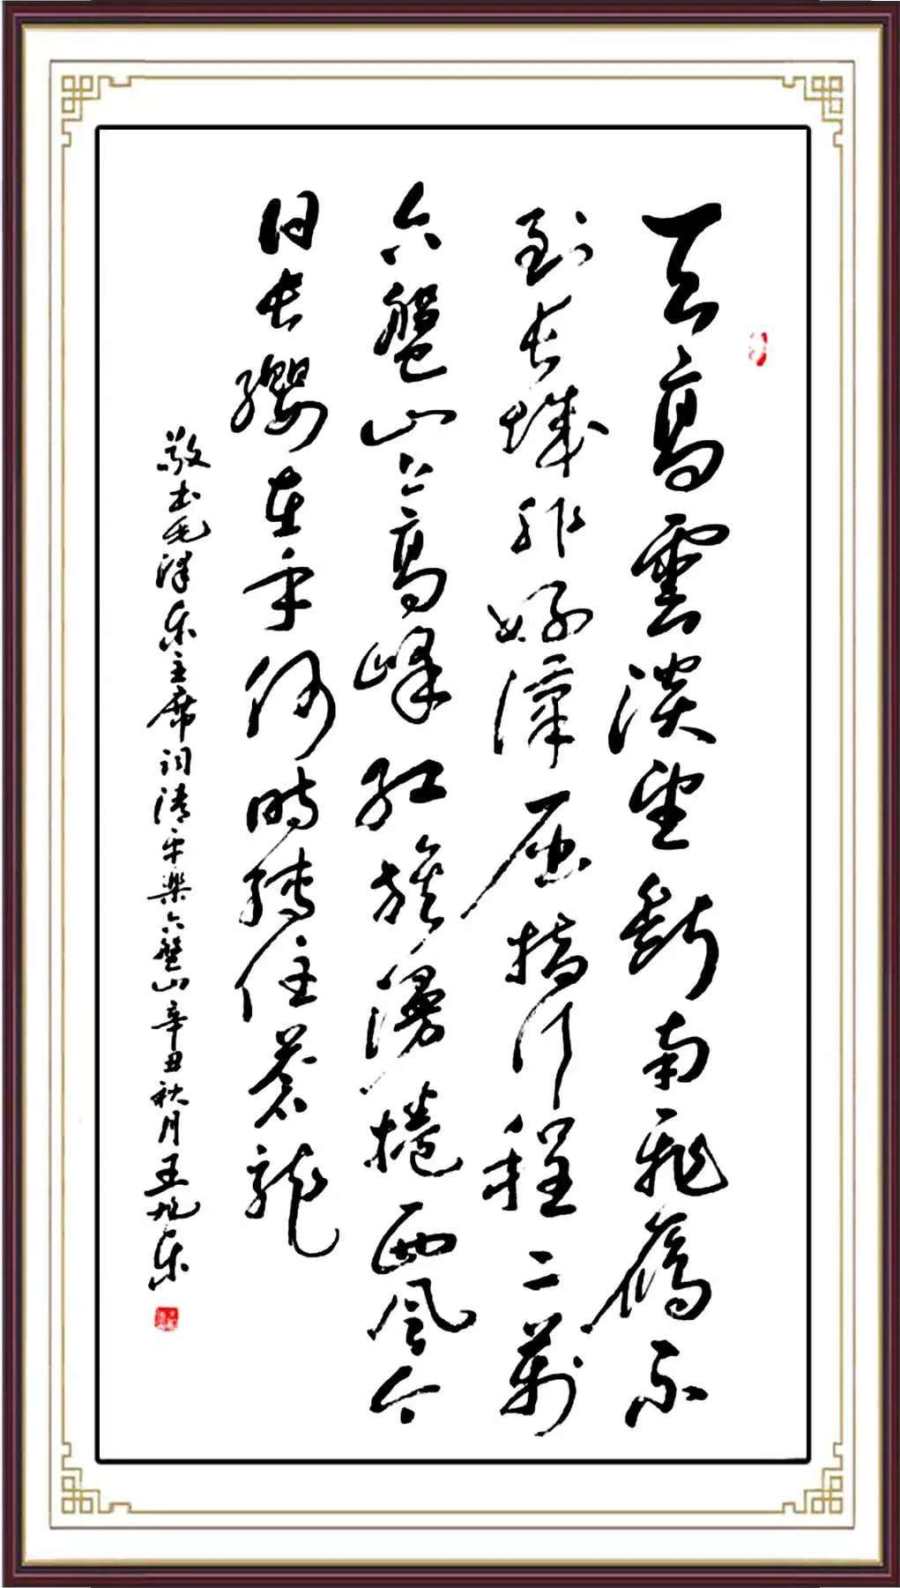 天高雲淡望斷南飛鴈不
到長城非好漢屈指行程二萬
六盤山上高峰紅旗漫捲西風今
日長纓在手何時縛住蒼龍
敬书毛澤东主席詞清平樂六盤山辛丑秋月王旭东